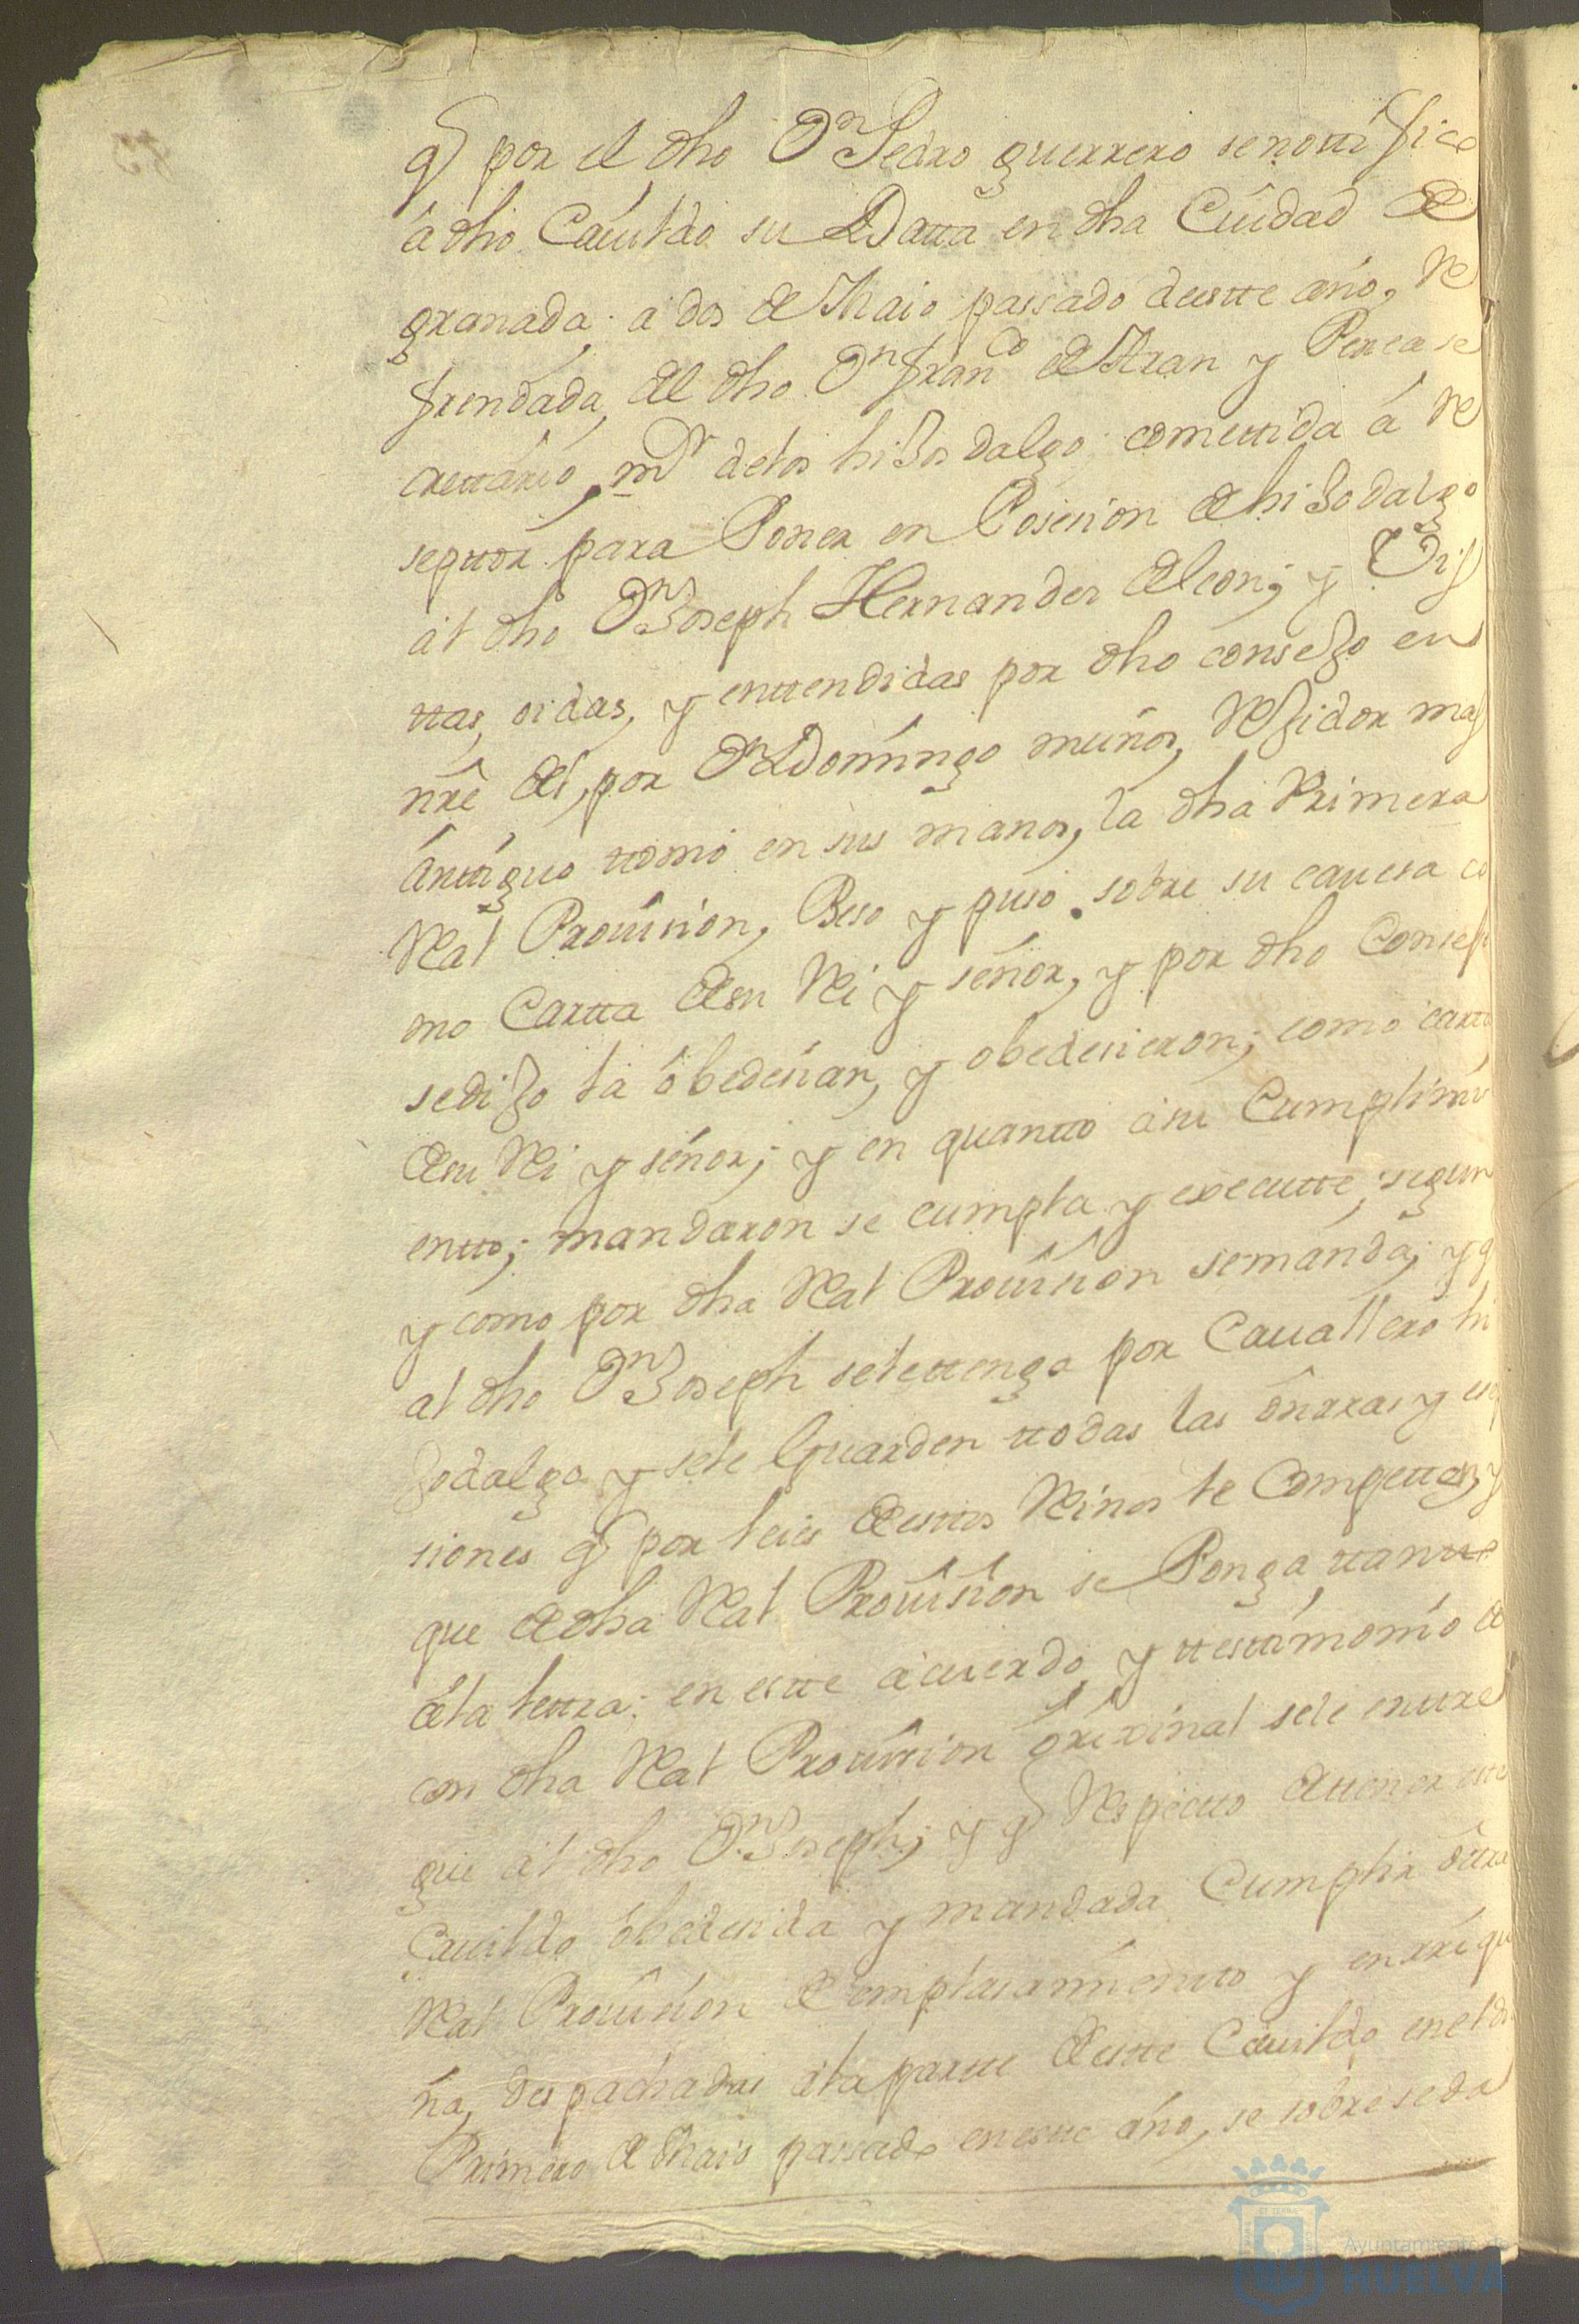 q por el dho Dn Pedro guerrero se nottifice
â dho Cauildo su Datta en dha Ciudad de
granada a dos de Maio passado deestte año, Re
frendada, del dho Dn franco de Aran y Perea se
crettario mor de los hijos dalgo comettida â Re
septtor para Poner en Posesion de hijodalgo
âl dho Dn Joseph Hernandes de leon; y Vis
ttas, oidas, y enttendidas por dho consejo en
nre de el, por Dn Domingo muños, Rejidor mas
ânttiguo ttomó en sus manos, la dha Primera
Real Prouision, Beso y puso sobre su cauesa co
mo Cartta de su Rei y señor, y por dho Consejo
se dijo la ôbedesian, y obedesieron; como cartta
de su Rei y señor; y en quantto â su Cumplimi
entto; mandaron se cumpla y executte, segun
y como por dha Real Prouision se manda; y q
al dho Dn Joseph se le ttenga por Cauallero hi
jodalgo y se le Guarden ttodas las ônrras y es
siones q por leies de esttos Reinos le Compettan, y
que de dha Real Prouision se Ponga ttantto
â la lettra en estte âcuerdo y ttesttimonio de
con dha Real Prouision ôrixinal se le enttre
gue âl dho Dn Joseph; y q Respectto de ttener estte
Cauildo ôbedesida y mandada Cumplir ôttra
Real Prouision de emplasamientto y en
ña, despachadas â la partte de estte Cauildo en el di
Primero de Maio passado en estte año, se sobreseda
Ayuntamiento de
HUELVA